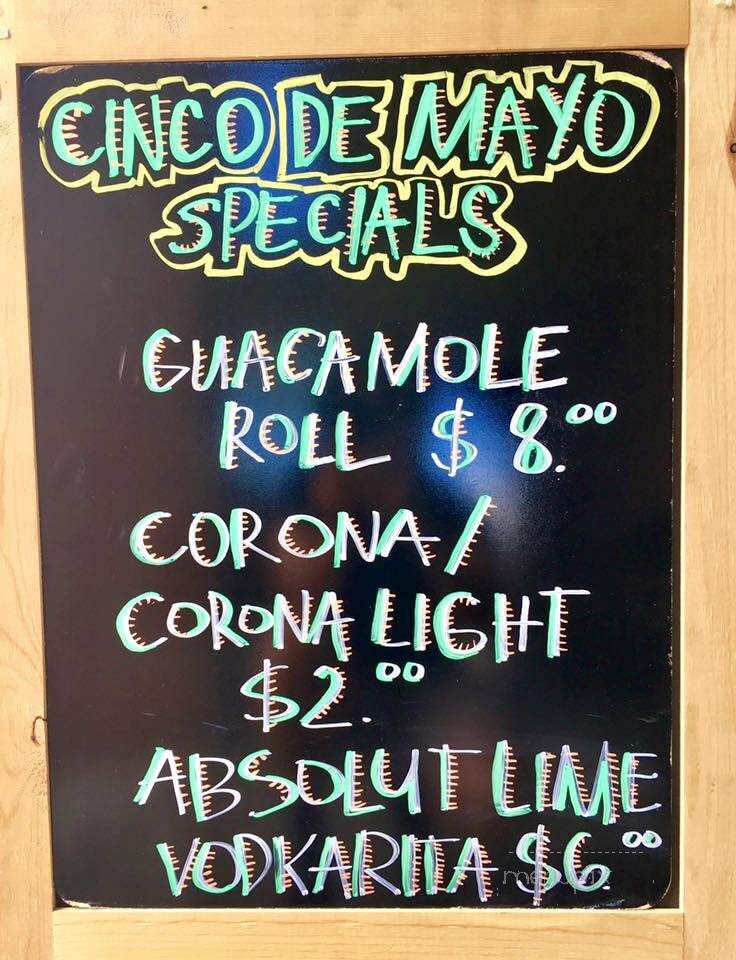 CINCO DE MAYO
SPECIALS
GUACAMOLE
ROLL $8.00
CORONA/
CORONA LIGHT
$2.00
ABSOLUT LIME
VODKARITA $6.00